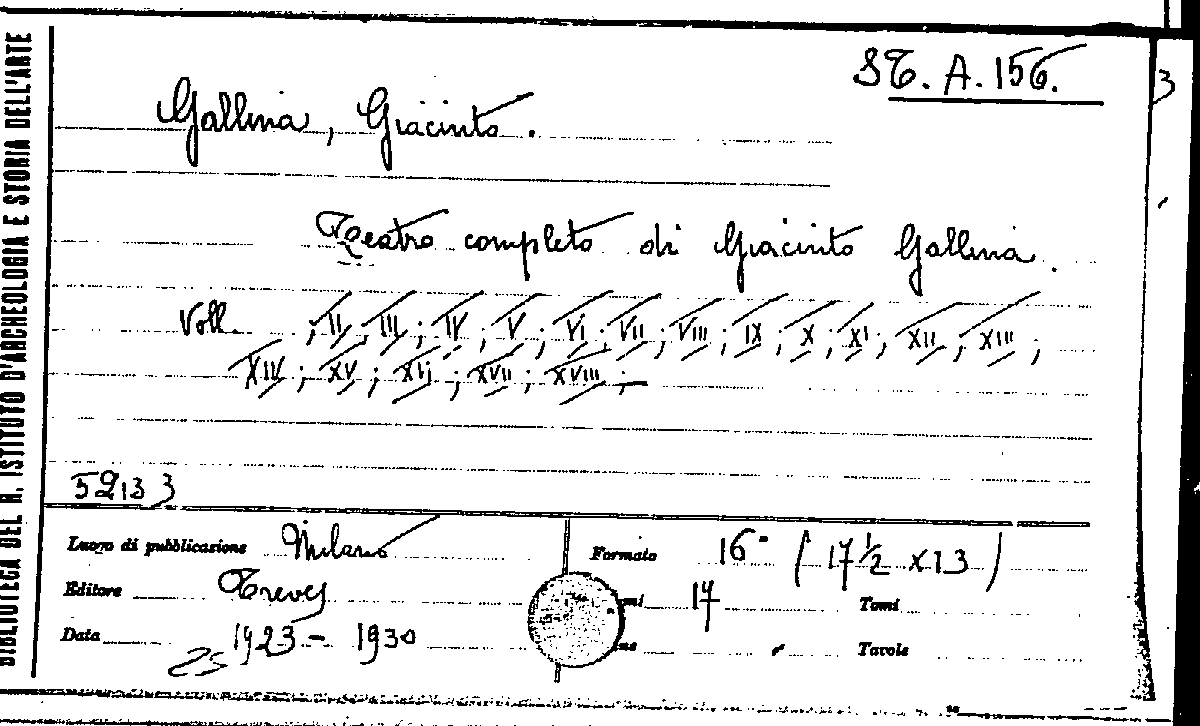 BIBLIOTECA DEL R. ISTITUTO D'ARCHEOLOGIA E STORIA DELL'ARTE
ST. A. 156.
3
Gallina, Giacinto.
Teatro completo di Giacinto Gallina.
Voll. ; II ; III ; IV ; V ; VI ; VII ; VIII ; IX ; X ; XI ; XII ; XIII ;
XIV ; XV ; XVI ; XVII ; XVIII ;
52133
Luogo di pubblicazione Milano
Formato 16° ( 17 1/2 x 13 )
Editore Treves
mi 17
Tomi
Data 1923 - 1930
ne
Tavole
25